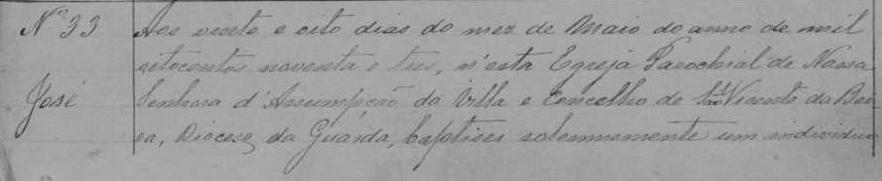 Nº 33 Aos vinte e oito dias do mez de Maio do anno de mil
oitocentos noventa e tres, n'esta Egreja Parochial de Nossa
José Senhora d'Assumpção da Villa e Concelho de São Vicente da Bei-
ra, Diocese da Guarda, baptisei solemnemente um individuo